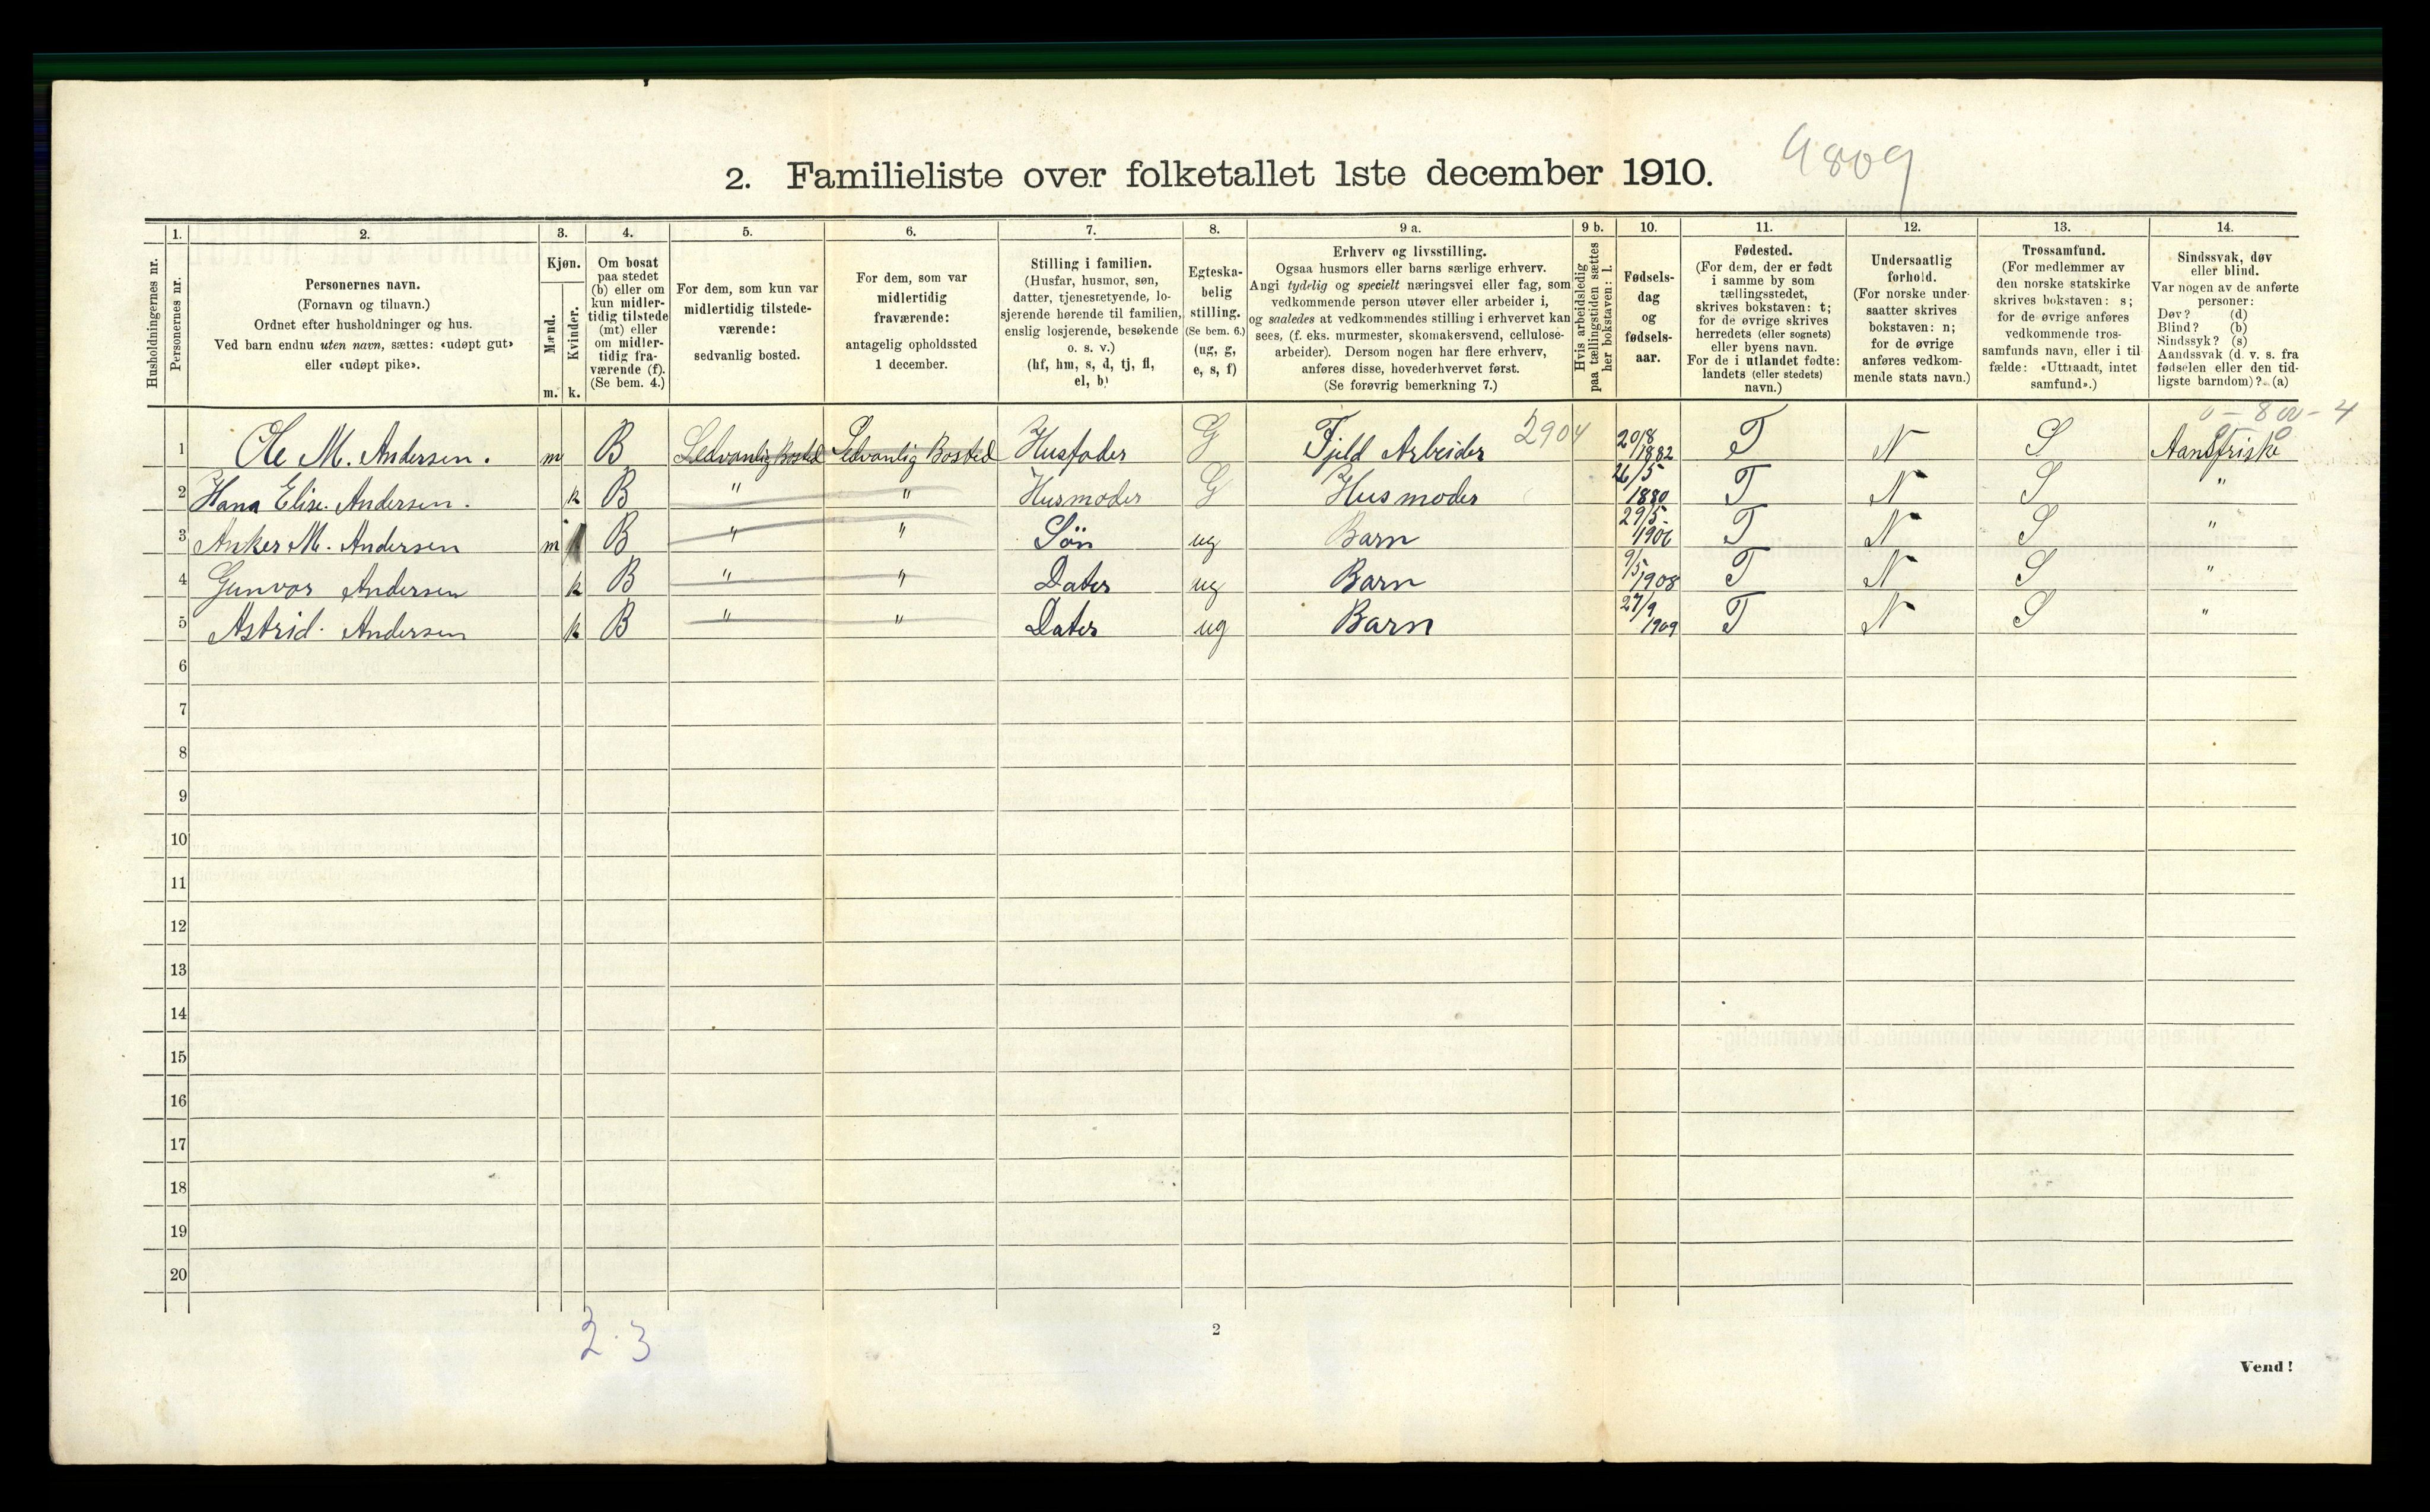 9809
2. Familieliste over folketallet 1ste december 1910.
1. 2. 3. 4. 5. 6. 7. 8. 9 a. 9 b. 10. 11. 12. 13. 14.
Husholdningernes nr.
Personernes nr.
Personernes navn.
(Fornavn og tilnavn.)
Ordnet efter husholdninger og hus.
Ved barn endnu uten navn, sættes: «udøpt gut»
eller «udøpt pike».
Kjøn.
Mænd.
Kvinder.
m. k.
Om bosat
paa stedet
(b) eller om
kun midler-
tidig tilstede
(mt) eller
om midler-
tidig fra-
værende (f).
(Se bem. 4.)
For dem, som kun var
midlertidig tilstede-
værende:
sedvanlig bosted.
For dem, som var
midlertidig
fraværende:
antagelig opholdssted
1 december.
Stilling i familien.
(Husfar, husmor, søn,
datter, tjenestetyende, lo-
sjerende hørende til familien,
enslig losjerende, besøkende
o. s. v.)
(hf, hm, s, d, tj, fl,
el, b)
Egteska-
belig
stilling.
(Se bem. 6.)
(ug, g,
e, s, f)
Erhverv og livsstilling.
Ogsaa husmors eller barns særlige erhverv.
Angi tydelig og specielt næringsvei eller fag, som
vedkommende person utøver eller arbeider i,
og saaledes at vedkommendes stilling i erhvervet kan
sees, (f. eks. murmester, skomakersvend, cellulose-
arbeider). Dersom nogen har flere erhverv,
anføres disse, hovederhvervet først.
(Se forøvrig bemerkning 7.)
Hvis arbeidsledig
paa tællingstiden sættes
her bokstaven: l.
Fødsels-
dag
og
fødsels-
aar.
Fødested.
(For dem, der er født
i samme by som
tællingsstedet,
skrives bokstaven: t;
for de øvrige skrives
herredets (eller sognets)
eller byens navn.
For de i utlandet fødte:
landets (eller stedets)
navn.)
Undersaatlig
forhold.
(For norske under-
saatter skrives
bokstaven: n;
for de øvrige
anføres vedkom-
mende stats navn.)
Trossamfund.
(For medlemmer av
den norske statskirke
skrives bokstaven: s;
for de øvrige anføres
vedkommende tros-
samfunds navn, eller i til-
fælde: «Uttraadt, intet
samfund».)
Sindssvak, døv
eller blind.
Var nogen av de anførte
personer:
Døv? (d)
Blind? (b)
Sindssyk? (s)
Aandssvak (d. v. s. fra
fødselen eller den tid-
ligste barndom)? (a)
1 Ole M. Andersen. m B Sedvanlig Bosted Sedvanlig Bosted Husfader G Fjeld Arbeider 2904 20/8 1882 T N S Aandsfriske
2 Hana Elise Andersen. k B " " Husmoder G Husmoder 26/5 1880 T N S "
3 Anker M. Andersen m B " " Søn ug Barn 29/5 1906 T N S "
4 Gunvor Andersen k B " " Dater ug Barn 9/5 1908 T N S "
5 Astrid Andersen k B " " Dater ug Barn 27/9 1909 T N S "
6
7
8
9
10
11
12
13
14
15
16
17
18
19
20
2.3
2
Vend!